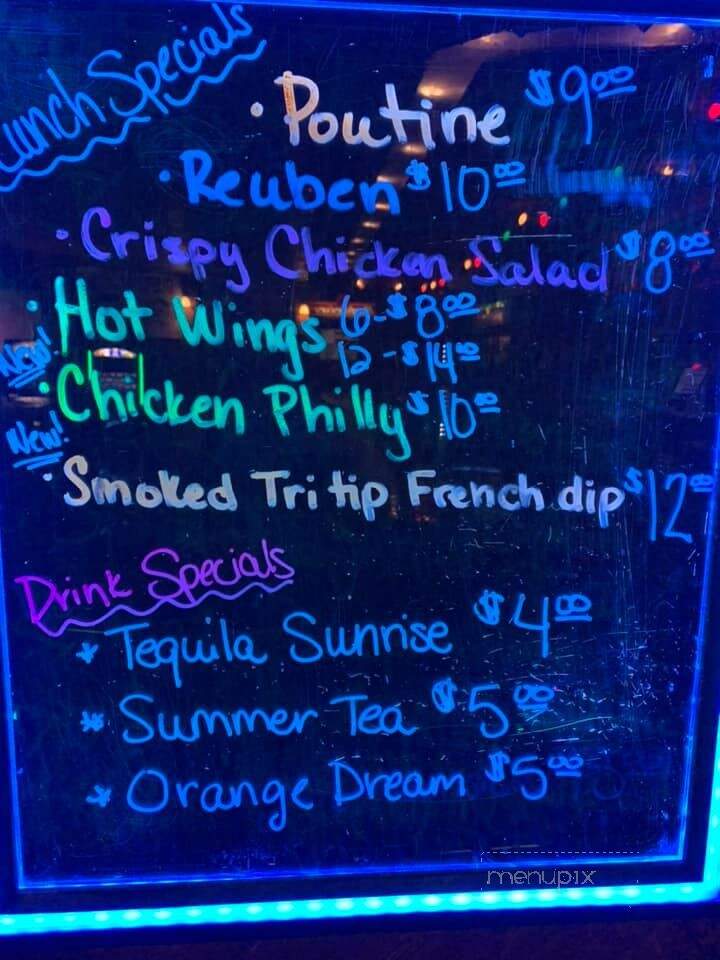 Lunch Specials
• Poutine $9.00
• Reuben $10.00
• Crispy Chicken Salad $8.00
• Hot Wings 6-$8.00
12-$14.00
New!
• Chicken Philly $10.00
New!
• Smoked Tri tip French dip $12.00
Drink Specials
* Tequila Sunrise $4.00
* Summer Tea $5.00
* Orange Dream $5.00
menupix